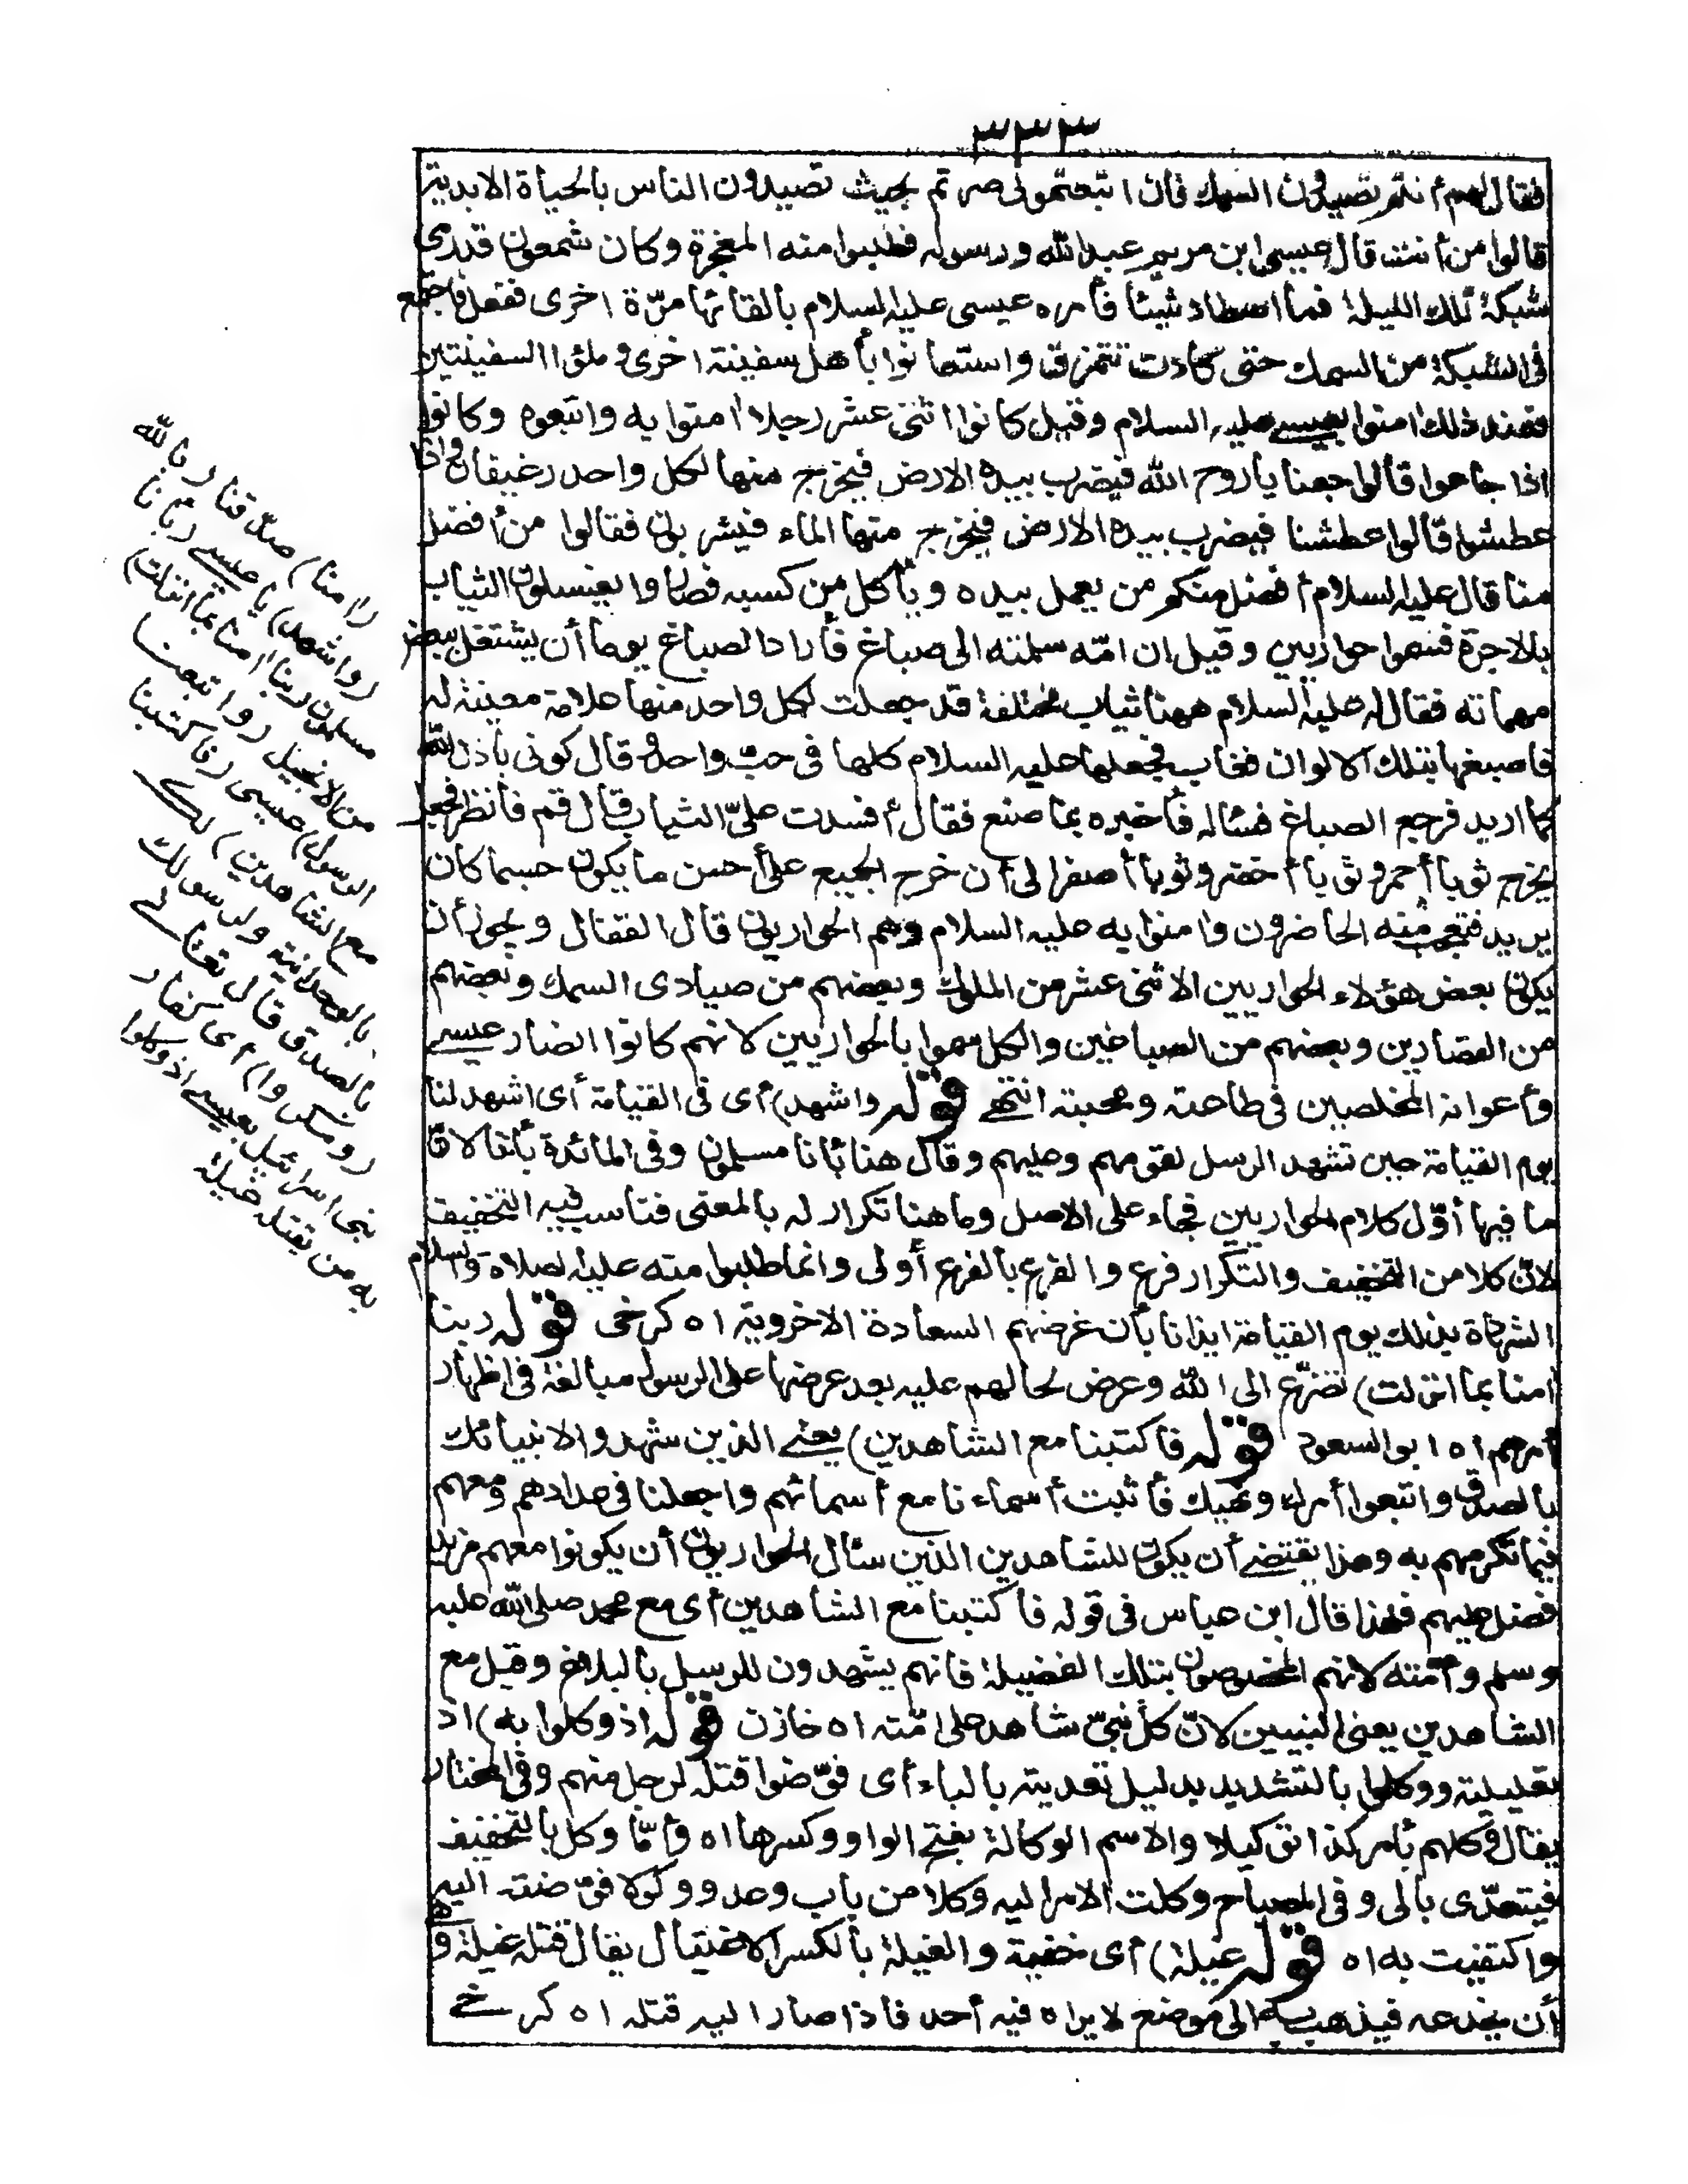 ٣٣٣
فقال لهم أنتم تصيدون السمك فان اتبعتموني صرتم بحيث تصيدون الناس بالحياة الابدية
قالوا من أنت قال عيسى ابن مريم عبد الله ورسوله فطلبوا منه المعجزة وكان شمعون قد رمى
شبكة تلك الليلة فما اصطاد شيئا فأمره عيسى عليه السلام بالقائها مرّة اخرى ففعل فاجتمع
في الشبكة من السمك حتى كادت تتمزق واستعانوا بأهل سفينة اخرى وملؤا السفينتين
فعند ذلك امنوا بعيسى عليه السلام وقيل كانوا اثنى عشر رجلا امنوا به واتبعوه وكانوا
اذا جاعوا قالوا جعنا يا روح الله فيضرب بيده الارض فيخرج منها لكل واحد رغيفان واذا
عطشوا قالوا عطشنا فيضرب بيده الارض فيخرج منها الماء فيشربون فقالوا من أفضل
منا قال عليه السلام أفضل منكم من يعمل بيده ويأكل من كسبه فصاروا يغسلون الثياب
بالاجرة فسموا حواريين وقيل ان امّه سلمته الى صباغ فأراد الصباغ يوما أن يشتغل ببعض
مهماته فقال له عليه السلام ههنا ثياب مختلفة قد جعلت لكل واحد منها علامة معينة له
فاصبغها بتلك الالوان فغاب فجعلها عليه السلام كلها فى حبّ واحد وقال كونى باذن الله
كما اريد فرجع الصباغ فسأله فأخبره بما صنع فقال أفسدت علىّ الثياب قال قم فانظر فجعل
يخرج ثوبا أحمر وثوبا أخضر وثوبا أصفر الى أن خرج الجميع على أحسن ما يكون حسبما كان
يريد فتعجب منه الحاضرون وامنوا به عليه السلام وهم الحواريون قال القفال ويجوز أن
يكون بعض هؤلاء الحواريين الاثنى عشر من الملوك وبعضهم من صيادى السمك وبعضهم
من القصارين وبعضهم من الصباغين والكل سموا بالحواريين لانهم كانوا انصار عيسى
وأعوانه المخلصين فى طاعته ومحبته انتهى قوله واشهد) أى فى القيامة أى اشهد لنا
يوم القيامة حين تشهد الرسل لقومهم وعليهم وقال هنا بأنا مسلمون وفى المائدة بأننا لانّ
ما فيها أوّل كلام الحواريين فجاء على الاصل وما هنا تكرار له بالمعنى فناسب فيه التخفيف
لانّ كلا من التخفيف والتكرار فرع والفرع بالفرع أولى وانما طلبوا منه عليه الصلاة والسلام
الشهادة بذلك يوم القيامة ايذانا بأن غرضهم السعادة الاخروية اه كرخى قوله ربنا
امنا بما انزلت) تضرّع الى الله وعرض لحالهم عليه بعد عرضها على الرسول مبالغة فى اظهار
أمرهم اه ابو السعود قوله فاكتبنا مع الشاهدين) يعنى الذين شهدوا لانبيائك
بالصدق واتبعوا أمرك ونهيك فأثبت أسماءنا مع أسمائهم واجعلنا فى عدادهم ومعهم
فيما تكرمهم به وهذا يقتضى أن يكون للشاهدين الذين سئال الحواريون أن يكونوا معهم مزيد
فضل عليهم فلهذا قال ابن عباس فى قوله فاكتبنا مع الشاهدين أى مع محمد صلى الله عليه
وسلم وأمّته لانهم المخصوصون بتلك الفضيلة فانهم يشهدون للرسل بالبلاغ وقيل مع
الشاهدين يعنى النبيين لانّ كلّ نبىّ شاهد على امّته اه خازن قوله اذ وكلوا به) اذ
تعليلية ووكلوا بالتشديد بدليل تعديته بالباء أى فوّضوا قتله لرجل منهم وفى المختار
يقال وكلهم بأمر كذا توكيلا والاسم الوكالة بفتح الواو وكسرها اه وأمّا وكل بالتخفيف
فيتعدّى بالى وفى المصباح وكلت الامر اليه وكلا من باب وعد ووكولا فوّضته اليه
واكتفيت به اه قوله غيلة) أى خفية والغيلة بالكسر الاغتيال يقال قتله غيلة وهى
أن يخدعه فيذهب به الى موضع لا يراه فيه أحد فاذا صار اليه قتله اه كرخى
(امنا) صدّقنا (بالله
واشهد) يا عيسى (بأنا
مسلمون ربنا امنا بما انزلت)
من الانجيل (واتبعنا
الرسول) عيسى (فاكتبنا
مع الشاهدين) لك
بالوحدانية ولرسولك
بالصدق قال تعالى
(ومكروا) أى كفار
بنى اسرائيل بعيسى اذ وكلوا
به من يقتله غيلة